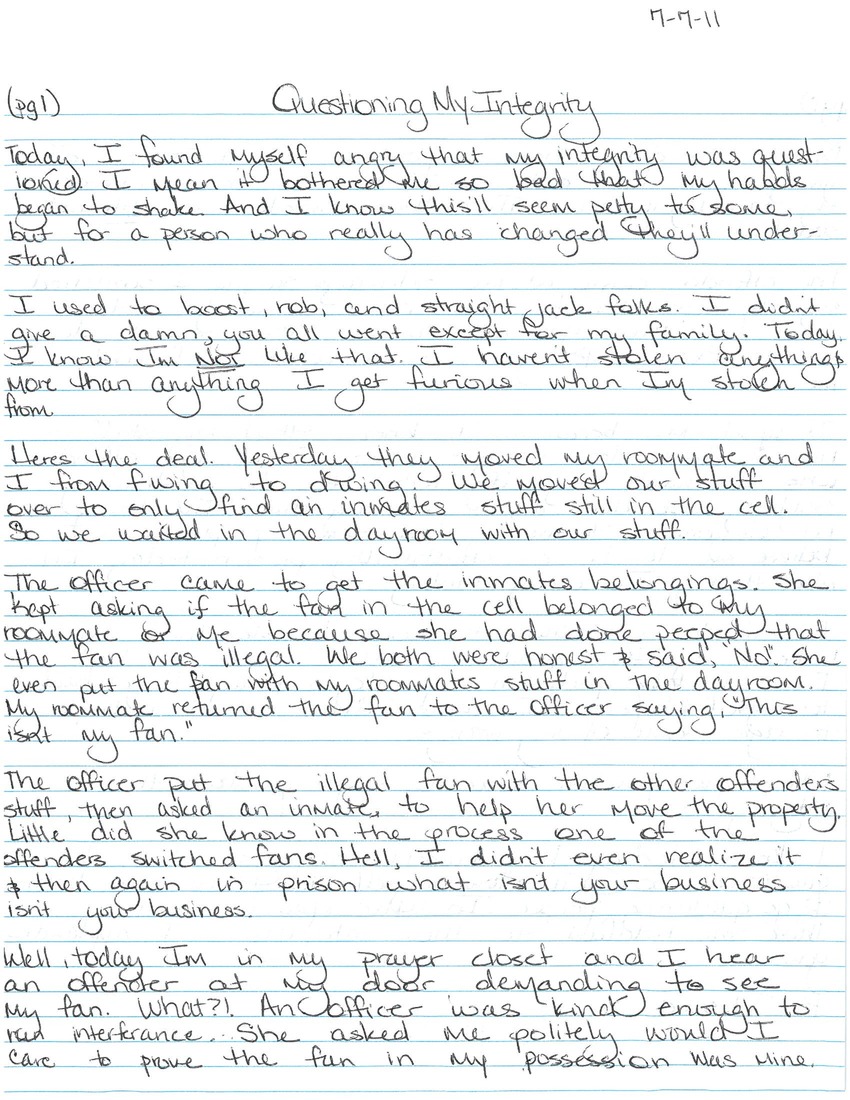 7-7-11
(pg1) Questioning My Integrity
Today, I found myself angry that my integrity was quest-
ioned. I mean it bothered me so bad that my hands
began to shake. And I know this'll seem petty to some,
but for a person who really has changed they'll under-
stand.
I used to boost, rob, and straight jack folks. I didn't
give a damn, you all went except for my family. Today,
I know Im NOT like that. I havent stolen anything &
more than anything I get furious when Im stolen
from.
Heres the deal. Yesterday they moved my roommate and
I from f wing to d wing. We moved our stuff
over to only find an inmates stuff still in the cell.
So we waited in the dayroom with our stuff.
The officer came to get the inmates belongings. She
kept asking if the fan in the cell belonged to my
roommate or me because she had done peeped that
the fan was illegal. We both were honest & said, "No". She
even put the fan with my roommates stuff in the dayroom.
My roommate returned the fan to the officer saying, "This
isn't my fan."
The officer put the illegal fan with the other offenders
stuff, then asked an inmate, to help her move the property.
Little did she know in the process one of the
offenders switched fans. Hell, I didn't even realize it
& then again in prison what isnt your business
isn't your business.
Well, today Im in my prayer closet and I hear
an offender at my door demanding to see
my fan. What?!. An officer was kind enough to
run interferance. She asked me politely would I
care to prove the fan in my possession was mine.